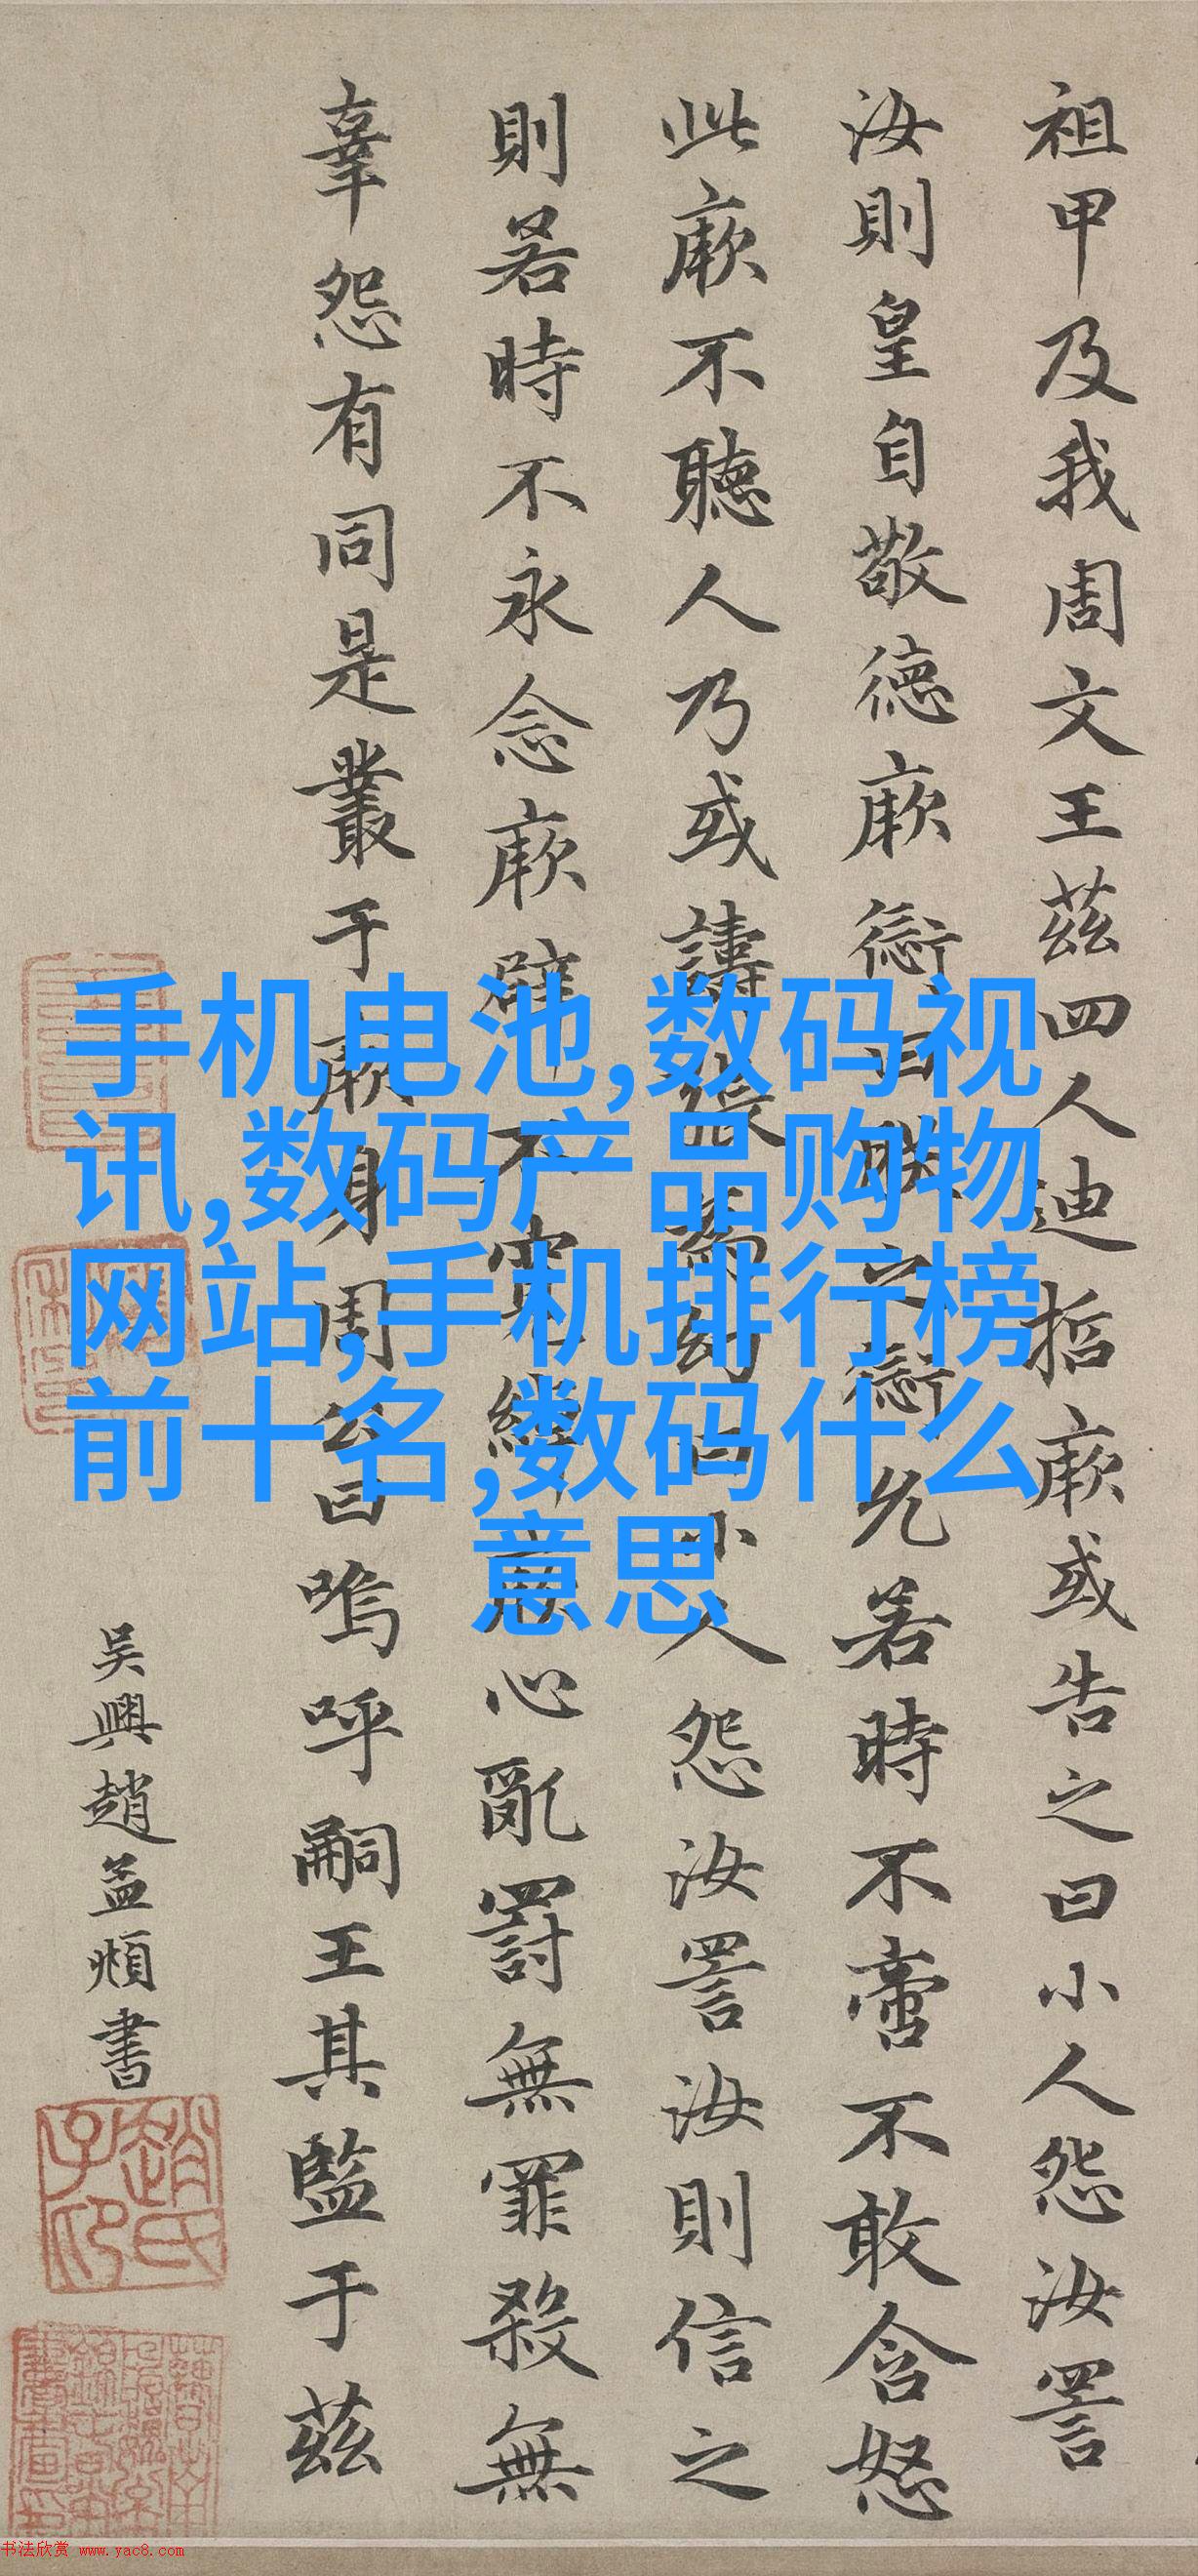 祖甲及我周文王茲四人迪哲厥或告之曰小人怨汝詈
汝則皇自敬德厥愆曰朕之愆允若時不啻不敢含怒
此厥不聽人乃或譸張為幻曰小人怨汝詈汝則信之
則若時不永念厥辟不寬綽厥心亂罰無罪殺無
辜怨有同是叢于厥身周公曰嗚呼嗣王其監于茲
吴興趙孟頫書
趙氏子印
手机电池,数码视
讯,数码产品购物
网站,手机排行榜
前十名,数码什么
意思
书法欣赏 www.yac8.com